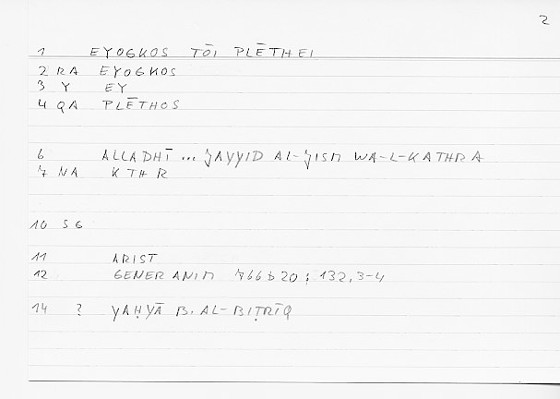 2
1 EYOGKOS TŌI PLĒTHEI
2 RA EYOGKOS
3 Y EY
4 QA PLĒTHOS
6 ALLADHĪ ... JAYYID AL-JISM WA-L-KATHRA
7 NA KTHR
10 SG
11 ARIST
12 GENER ANIM 766b20; 132.3-4
14 ? YAḤYĀ B. AL-BIṬRĪQ